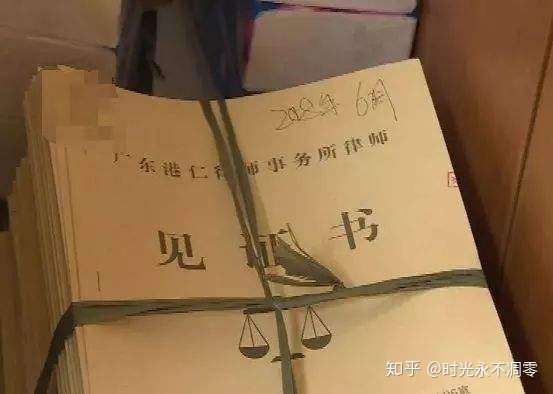 2018年 6月
广东港仁律师事务所律师
见证书
知乎 @时光永不凋零